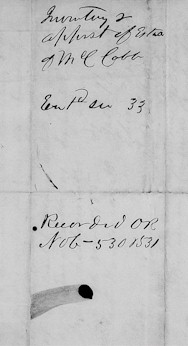 Inventory &
apprst of Esta
of McC Cobb
Entd in 33
Recorded OR
No 6 - 530 & 531